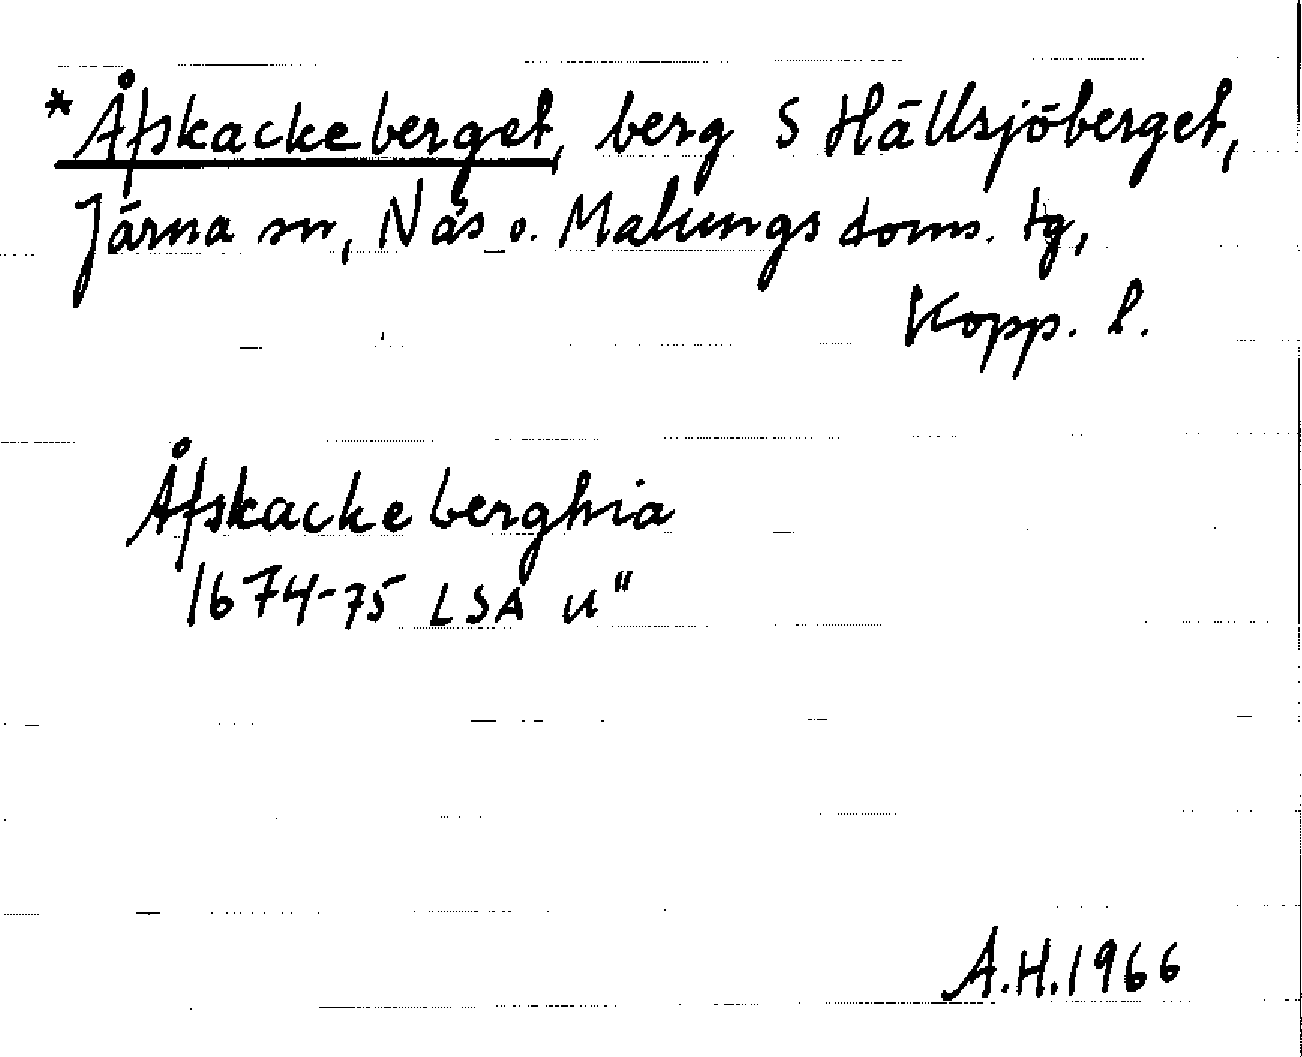 * Åfskackeberget, berg S Hällsjöberget,
Järna sn, Nås o. Malungs doms. tg,
Kopp. l.
Åfskackeberghia
1674-75 LSA u"
A.H. 1966